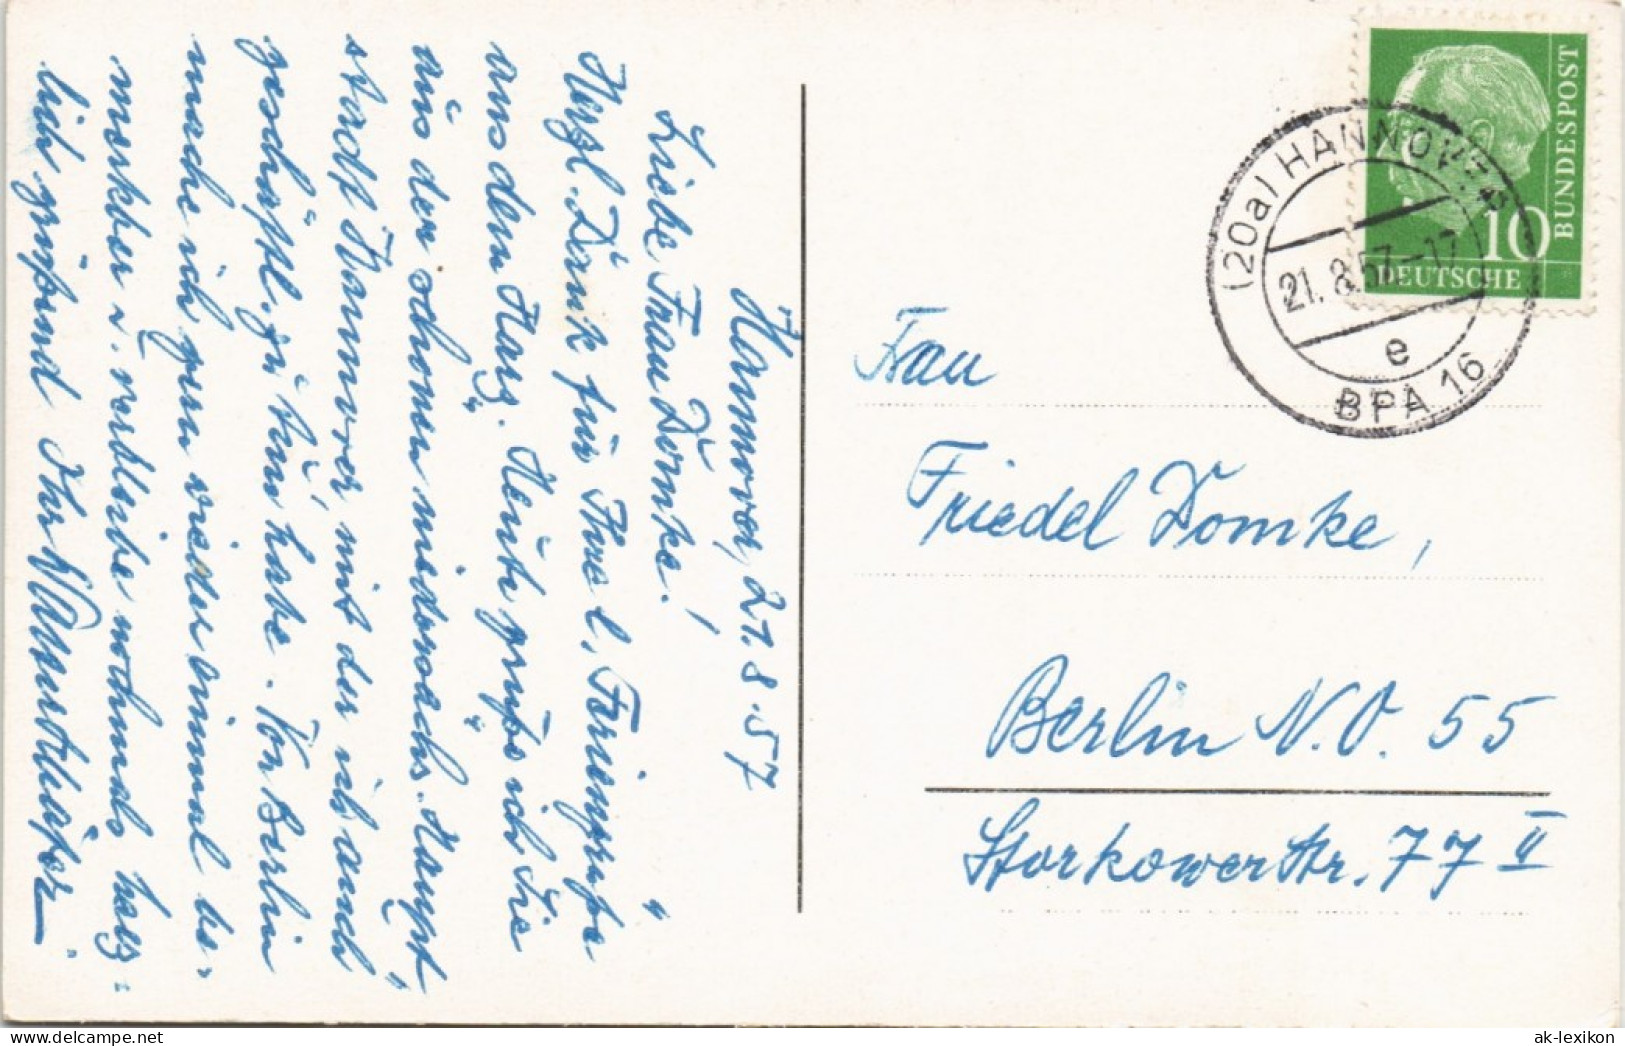 Hannover, 21.8.57
Liebe Frau Domke!
Herzl. Dank für Ihre l. Feriengrüße
aus dem Harz. Heute grüße ich Sie
aus der schönen niedersächs. Haupt-
stadt Hannover, mit der ich auch
geschäftl. zu tun habe. Von Berlin
mache ich gern wieder einmal be-
merkbar u. verbleibe nochmals herz-
lich grüßend Ihr
Frau
Friedel Domke,
Berlin N.O. 55
Storkowerstr. 77 II
DEUTSCHE
BUNDESPOST
10
(20a) HANNOVER
21.8.57-17
e
BPA 16
ak-lexikon